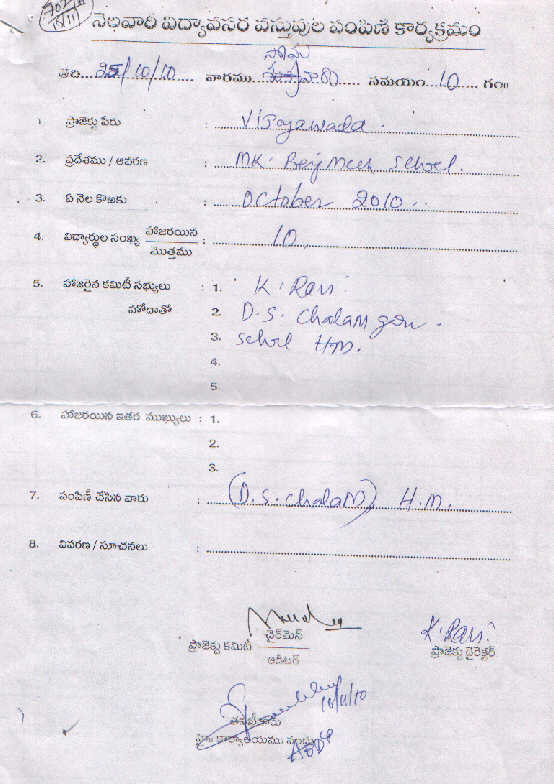 నెలవారి విద్యావసర వస్తువుల పంపిణి కార్యక్రమం
తేది 25/10/10 వారము సోమ వారం సమయం 10 గం॥
1. ప్రాజెక్టు పేరు : Vijayawada.
2. ప్రదేశము / ఆవరణ : MK. School.
3. ఏ నెల కొఱకు : October 2010
4. విద్యార్థుల సంఖ్య హాజరయిన / మొత్తము : 10
5. హాజరైన కమిటీ సభ్యులు : 1. K. Ravi
హోదాతో 2. D.S. Chalam
3. School H.M.
4.
5.
6. హాజరయిన ఇతర ముఖ్యులు : 1.
2.
3.
7. పంపిణీ చేసిన వారు : (D.S. Chalam) H.M.
8. వివరణ / సూచనలు :
ప్రాజెక్టు కమిటీ ఛైర్మెన్ / ఆడిటర్
K. Ravi
ప్రాజెక్టు డైరెక్టర్